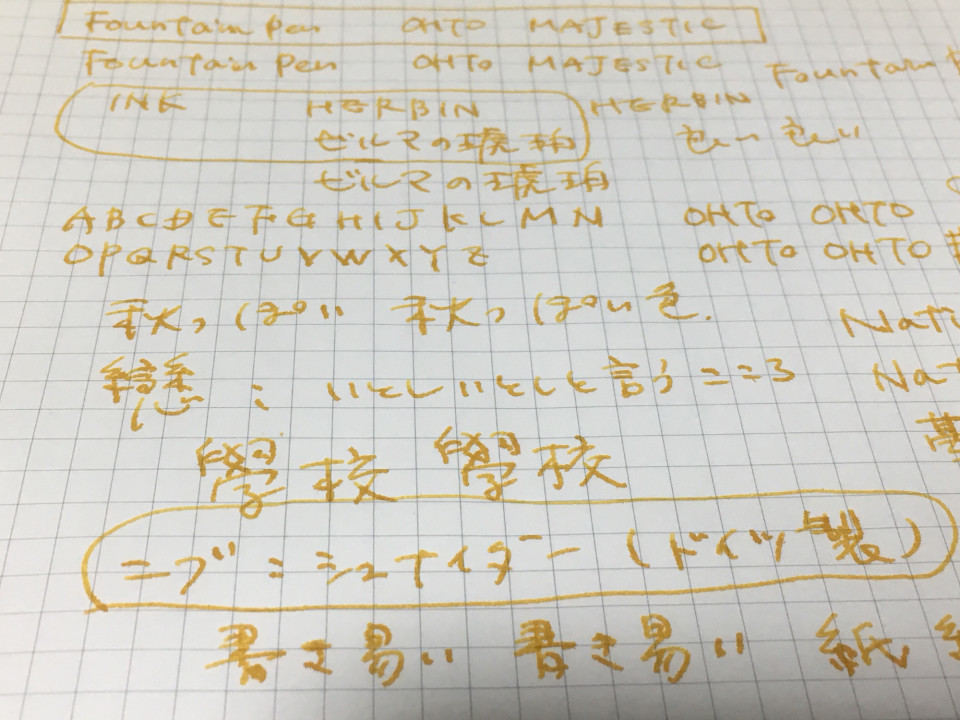 Fountain Pen OHTO MAJESTIC
Fountain Pen OHTO MAJESTIC Fountain
INK HERBIN HERBIN
ビルマの琥珀 色しい 色しい
ビルマの琥珀
A B C D E F G H I J K L M N OHTO OHTO
O P Q R S T U V W X Y Z OHTO OHTO
秋っぽい 秋っぽい色. Nati
戀 : いとしいとしと言うこころ Nat
學校 學校
ニブ : シュナイダー (ドイツ製)
書き易い 書き易い 紙